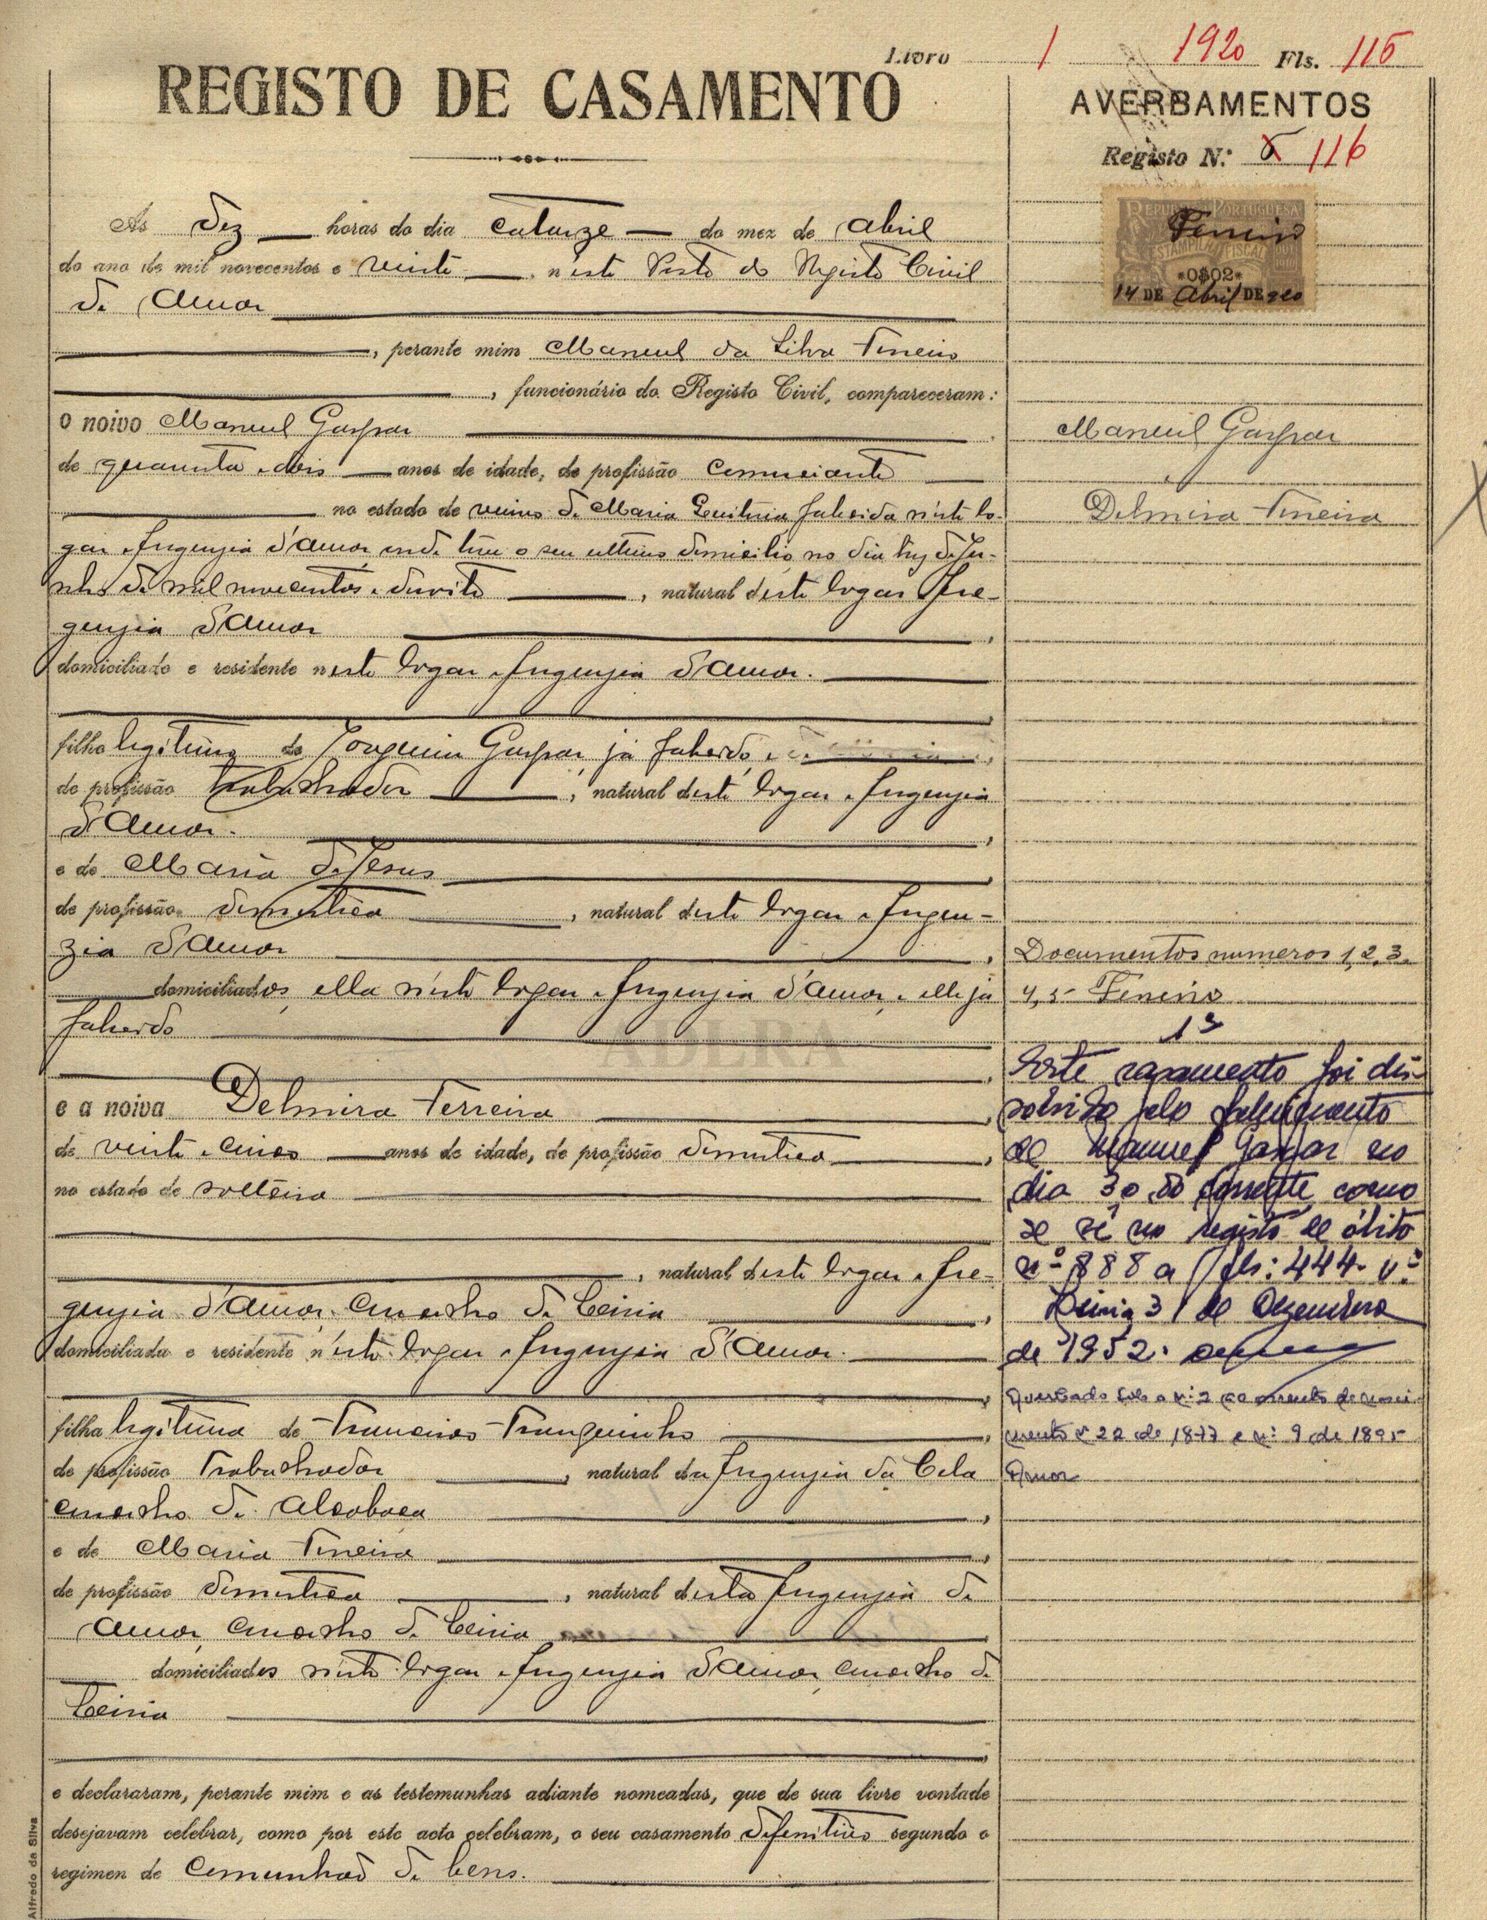 Livro 1 1920 Fls. 115
REGISTO DE CASAMENTO
AVERBAMENTOS
Registo N.º 116
REPUBLICA PORTUGUESA
Ferreira
ESTAMPILHA FISCAL
*0$02*
14 DE Abril DE 920
Às dez horas do dia catorze do mez de Abril
do ano de mil novecentos e vinte neste Posto do Registo Civil
de Amor
, perante mim Manuel da Silva Ferreira
, funcionário do Registo Civil, compareceram:
o noivo Manuel Gaspar
de quarenta e dois anos de idade, de profissão comerciante
no estado de viuvo de Maria falecida neste lo-
gar e freguezia d'Amor, onde teve o seu ultimo domicilio, no dia trez de Ju-
nho de mil novecentos e dezoito , natural deste logar e fre-
guezia d'Amor ,
domiciliado e residente neste logar e freguezia d'Amor.
filho legitimo de Joaquim Gaspar, já falecido,
de profissão trabalhador , natural deste logar e freguezia
d'Amor. ,
e de Maria de Jesus ,
de profissão domestica , natural deste logar e fregue-
zia d'Amor ,
domiciliados, ella neste logar e freguezia d'Amor, e elle já
falecido
ADLRA
e a noiva Delmira Ferreira ,
de vinte e cinco anos de idade, de profissão domestica ,
no estado de solteira
, natural deste logar e fre-
guezia d'Amor, concelho de Leiria ,
domiciliada e residente neste logar e freguezia d'Amor.
filha legitima de Francisco Franquinho ,
de profissão Trabalhador , natural da freguezia da Cela
concelho de Alcobaça ,
e de Maria Ferreira ,
de profissão domestica , natural desta freguezia de
Amor, concelho de Leiria
domiciliados neste logar e freguezia d'Amor, concelho de
Leiria
e declararam, perante mim e as testemunhas adiante nomeadas, que de sua livre vontade
desejavam celebrar, como por este acto celebram, o seu casamento definitivo segundo o
regimen de comunhão de bens.
Alfredo da Silva
Manuel Gaspar
Delmira Ferreira
Documentos numeros 1, 2, 3,
4, 5 Ferreira
1º
Este casamento foi dis-
solvido pelo falecimento
de Manuel Gaspar no
dia 30 do corrente como
se vê no registo de óbito
nº 888 a fls: 444. vº
Leiria 31 de Dezembro
de 1952.
Averbado sob o nº 2 ao assento de nasci-
mento nº 22 de 1877 e nº 9 de 1895
Amor